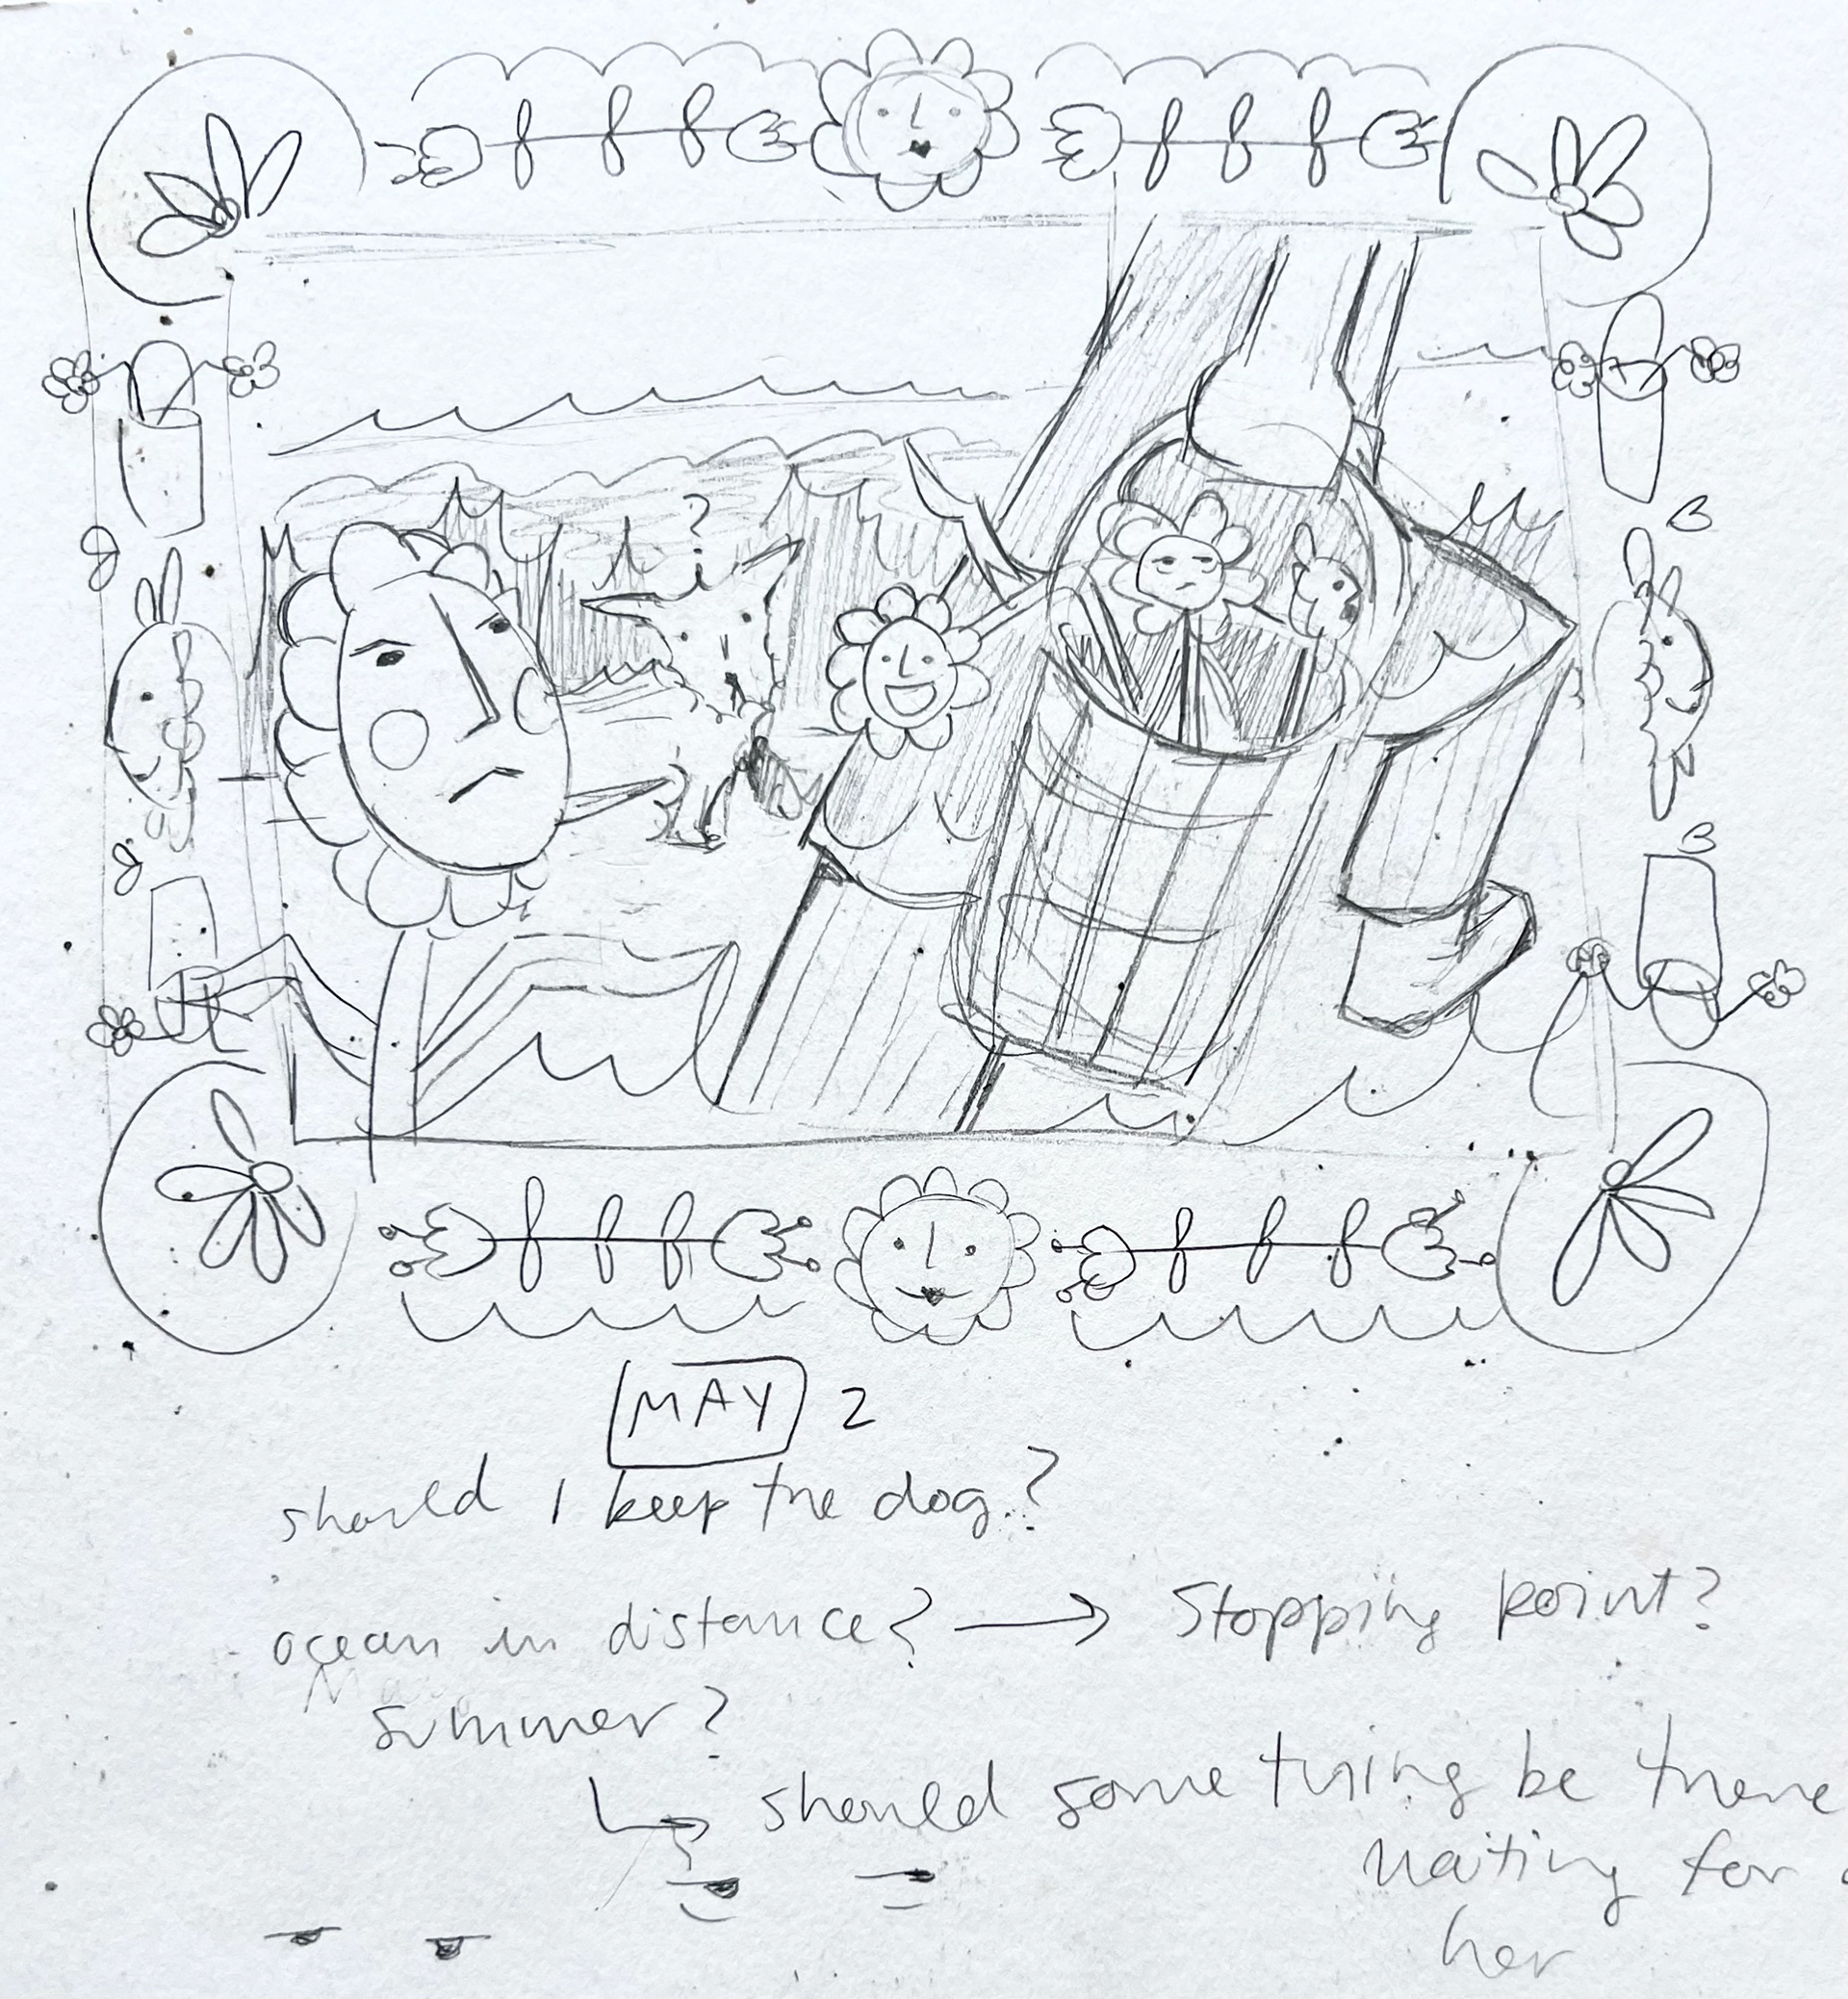 ?
MAY 2
should I keep the dog?
ocean in distance? → Stopping point?
summer?
↳ should something be there
waiting for
her